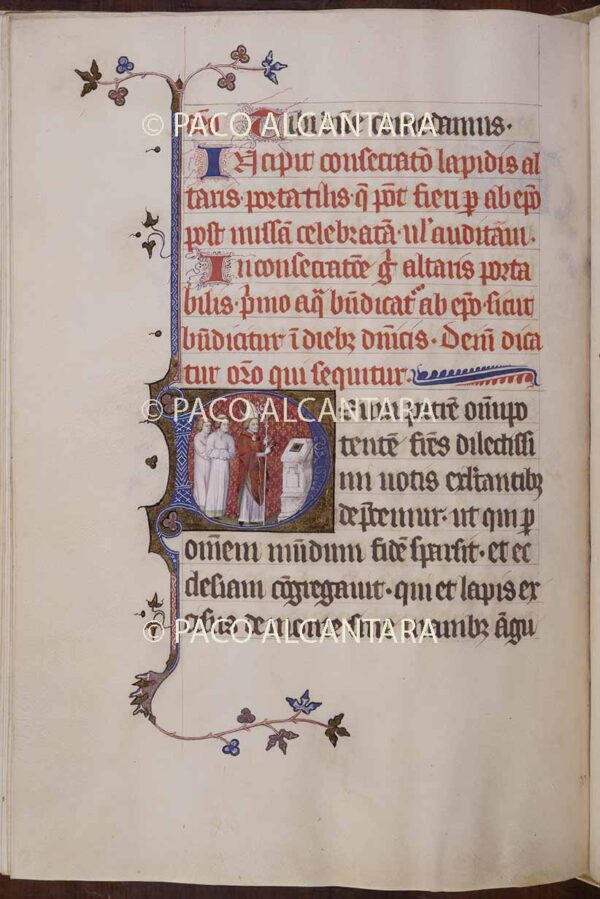 © PACO ALCANTARA
damus.
Incipit consecratō lapidis al
taris portatilis. q̄ pōt fieri p ab epō
post missā celebratā. ul' auditam.
In consecratōe g̊ altaris porta
bilis. pīmo aq̄ bn̄dicat᷑ ab epō sicut
bn̄dicitur ī diebꝫ dn̄icis. Dein̄ dica
tur orō qui sequitur.
© PACO ALCANTARA
patrē om̄ipo
tentē fr̄es dilectissi
mi uotis exltantibꝫ
dep̄cemur. ut qui p
om̄em mūdum fidē sparsit. et ec
clesiam cōgregauit. qui et lapis ex
© PACO ALCANTARA
de monte sine manibꝫ āgu